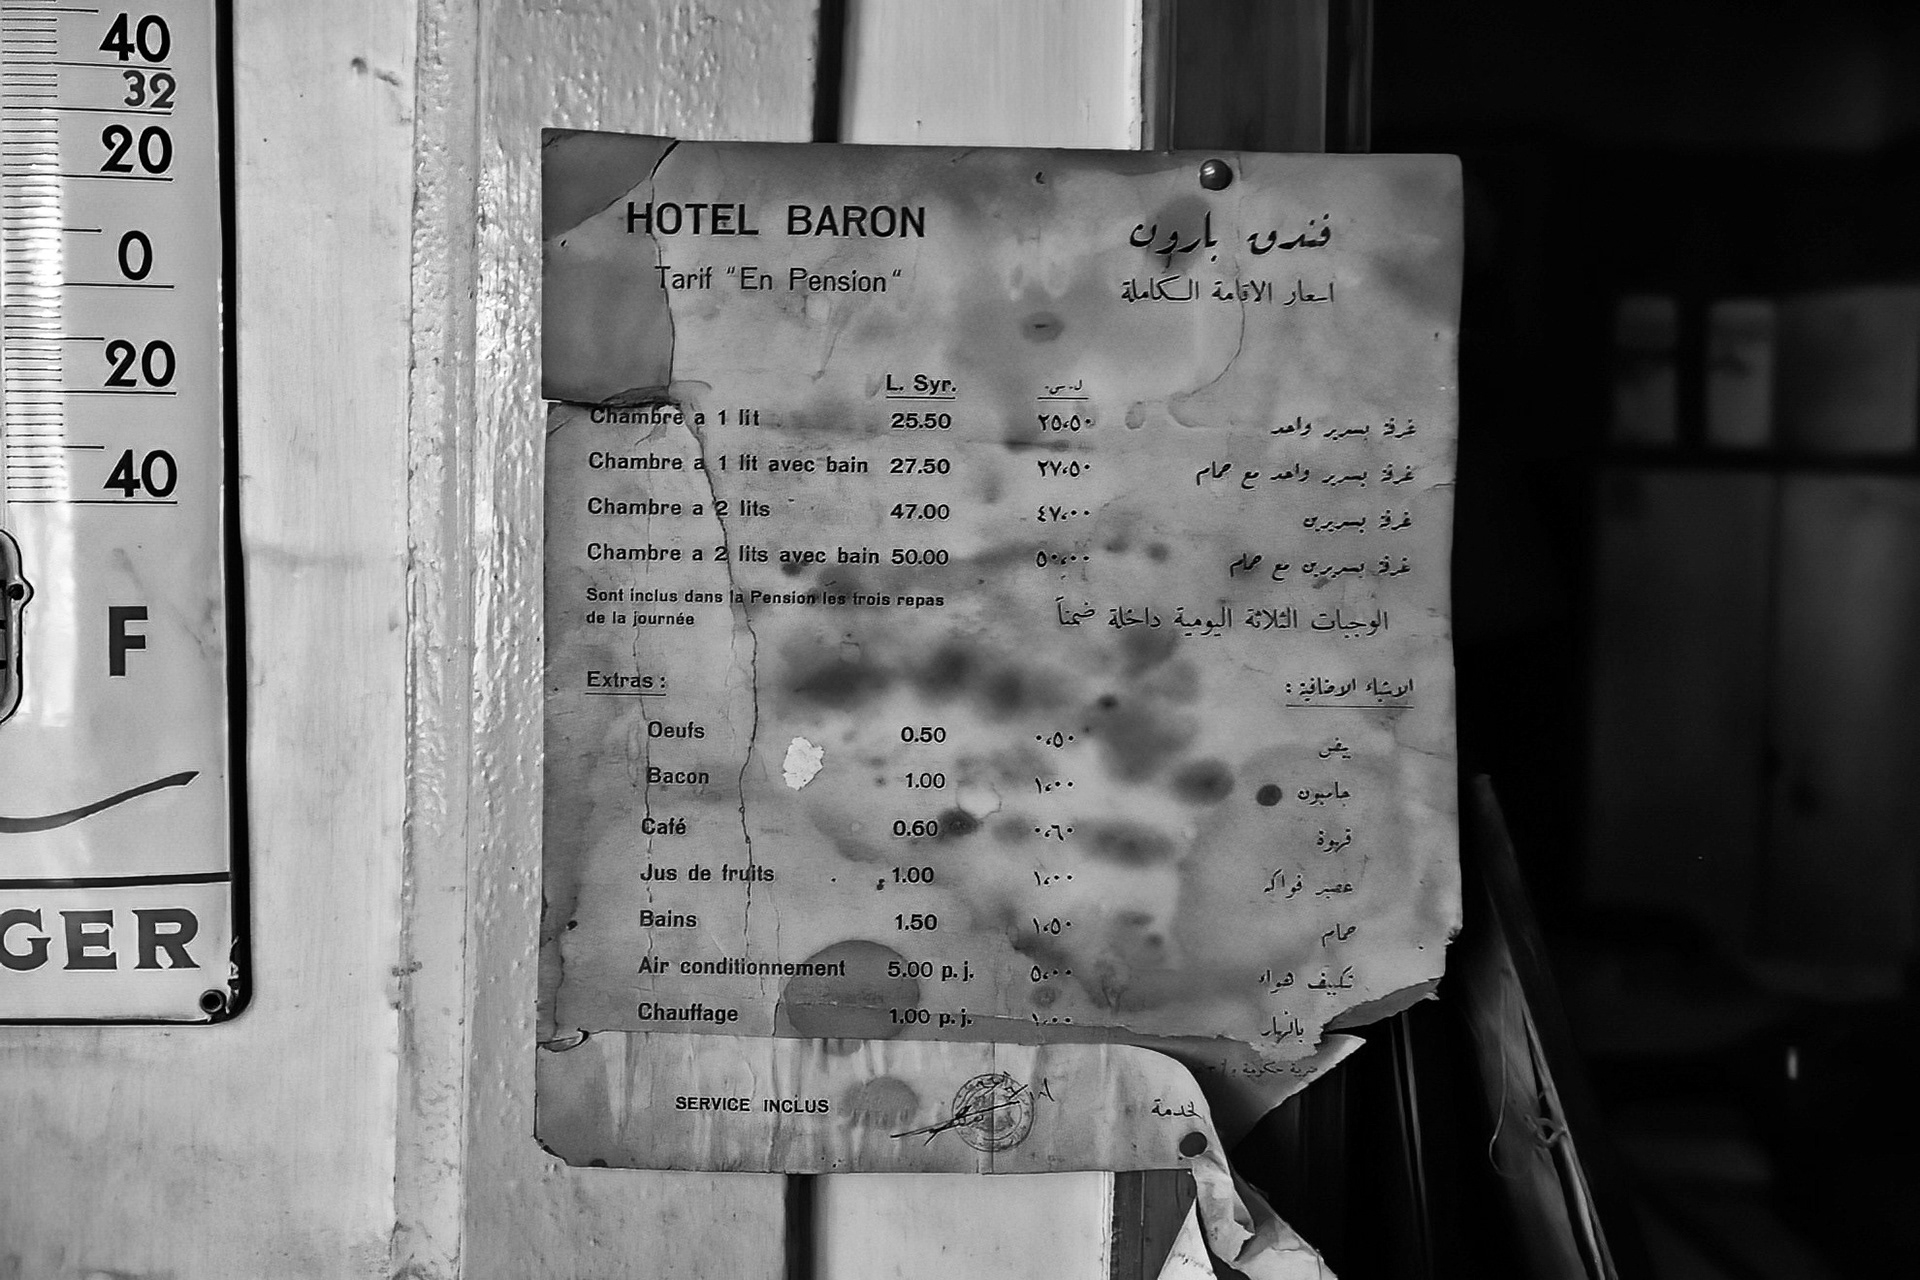 40
32
20
0
20
40
F
GER
HOTEL BARON
فندق بارون
Tarif "En Pension"
اسعار الاقامة الكاملة
L. Syr. ل.س.
Chambre a 1 lit 25.50 ٢٥،٥٠ غرفة بسرير واحد
Chambre a 1 lit avec bain 27.50 ٢٧،٥٠ غرفة بسرير واحد مع حمام
Chambre a 2 lits 47.00 ٤٧،٠٠ غرفة بسريرين
Chambre a 2 lits avec bain 50.00 ٥٠،٠٠ غرفة بسريرين مع حمام
Sont inclus dans la Pension les trois repas
de la journée
الوجبات الثلاثة اليومية داخلة ضمناً
Extras : الاشياء الاضافية :
Oeufs 0.50 ٠،٥٠ بيض
Bacon 1.00 ١،٠٠ جامبون
Café 0.60 ٠،٦٠ قهوة
Jus de fruits 1.00 ١،٠٠ عصير فواكه
Bains 1.50 ١،٥٠ حمام
Air conditionnement 5.00 p. j. ٥،٠٠ تكييف هواء
Chauffage 1.00 p. j. ١،٠٠ بالنهار
ضريبة حكومية
SERVICE INCLUS خدمة